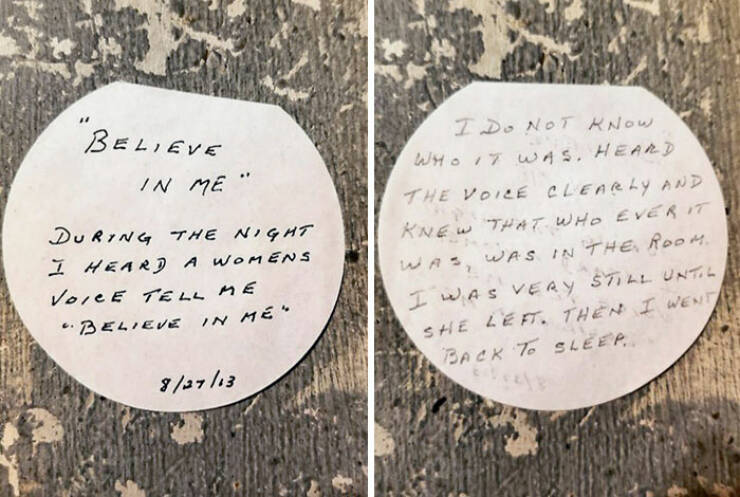 "BELIEVE
IN ME"
DURING THE NIGHT
I HEARD A WOMENS
VOICE TELL ME
"BELIEVE IN ME"
8/27/13
I DO NOT KNOW
WHO IT WAS. HEARD
THE VOICE CLEARLY AND
KNEW THAT WHO EVER IT
WAS, WAS IN THE ROOM.
I WAS VERY STILL UNTIL
SHE LEFT. THEN I WENT
BACK TO SLEEP.